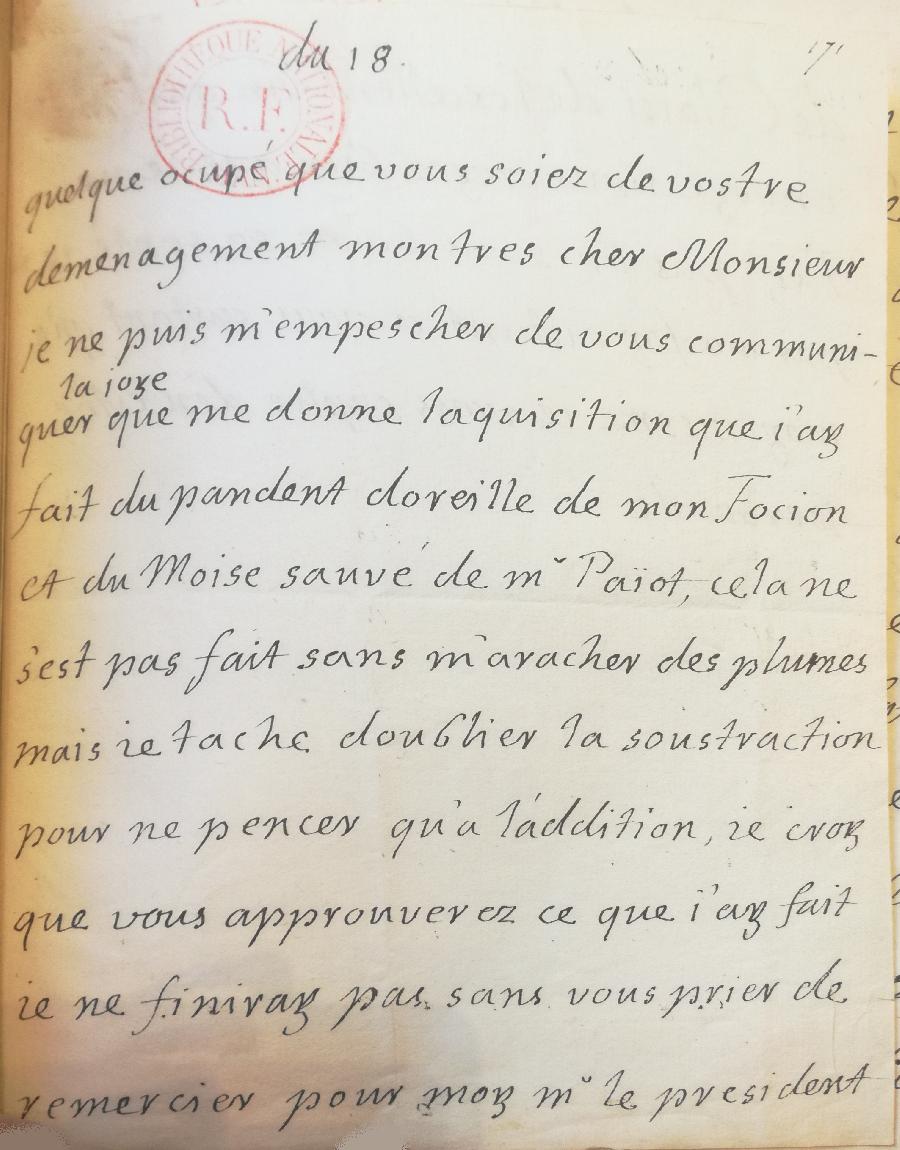 du 18.
171
BIBLIOTHÈQUE NATIONALE
R.F.
quelque ocupé que vous soiez de vostre
demenagement mon tres cher Monsieur
je ne puis m'empescher de vous communi-
la ioye
quer que me donne laquisition que i'ay
fait du pandent doreille de mon Focion
et du Moise sauvé de mr Païot, cela ne
s'est pas fait sans m'aracher des plumes
mais ie tache doublier la soustraction
pour ne pencer qu'a l'addition, ie croy
que vous approuverez ce que i'ay fait
ie ne finiray pas sans vous prier de
remercier pour moy mr le president